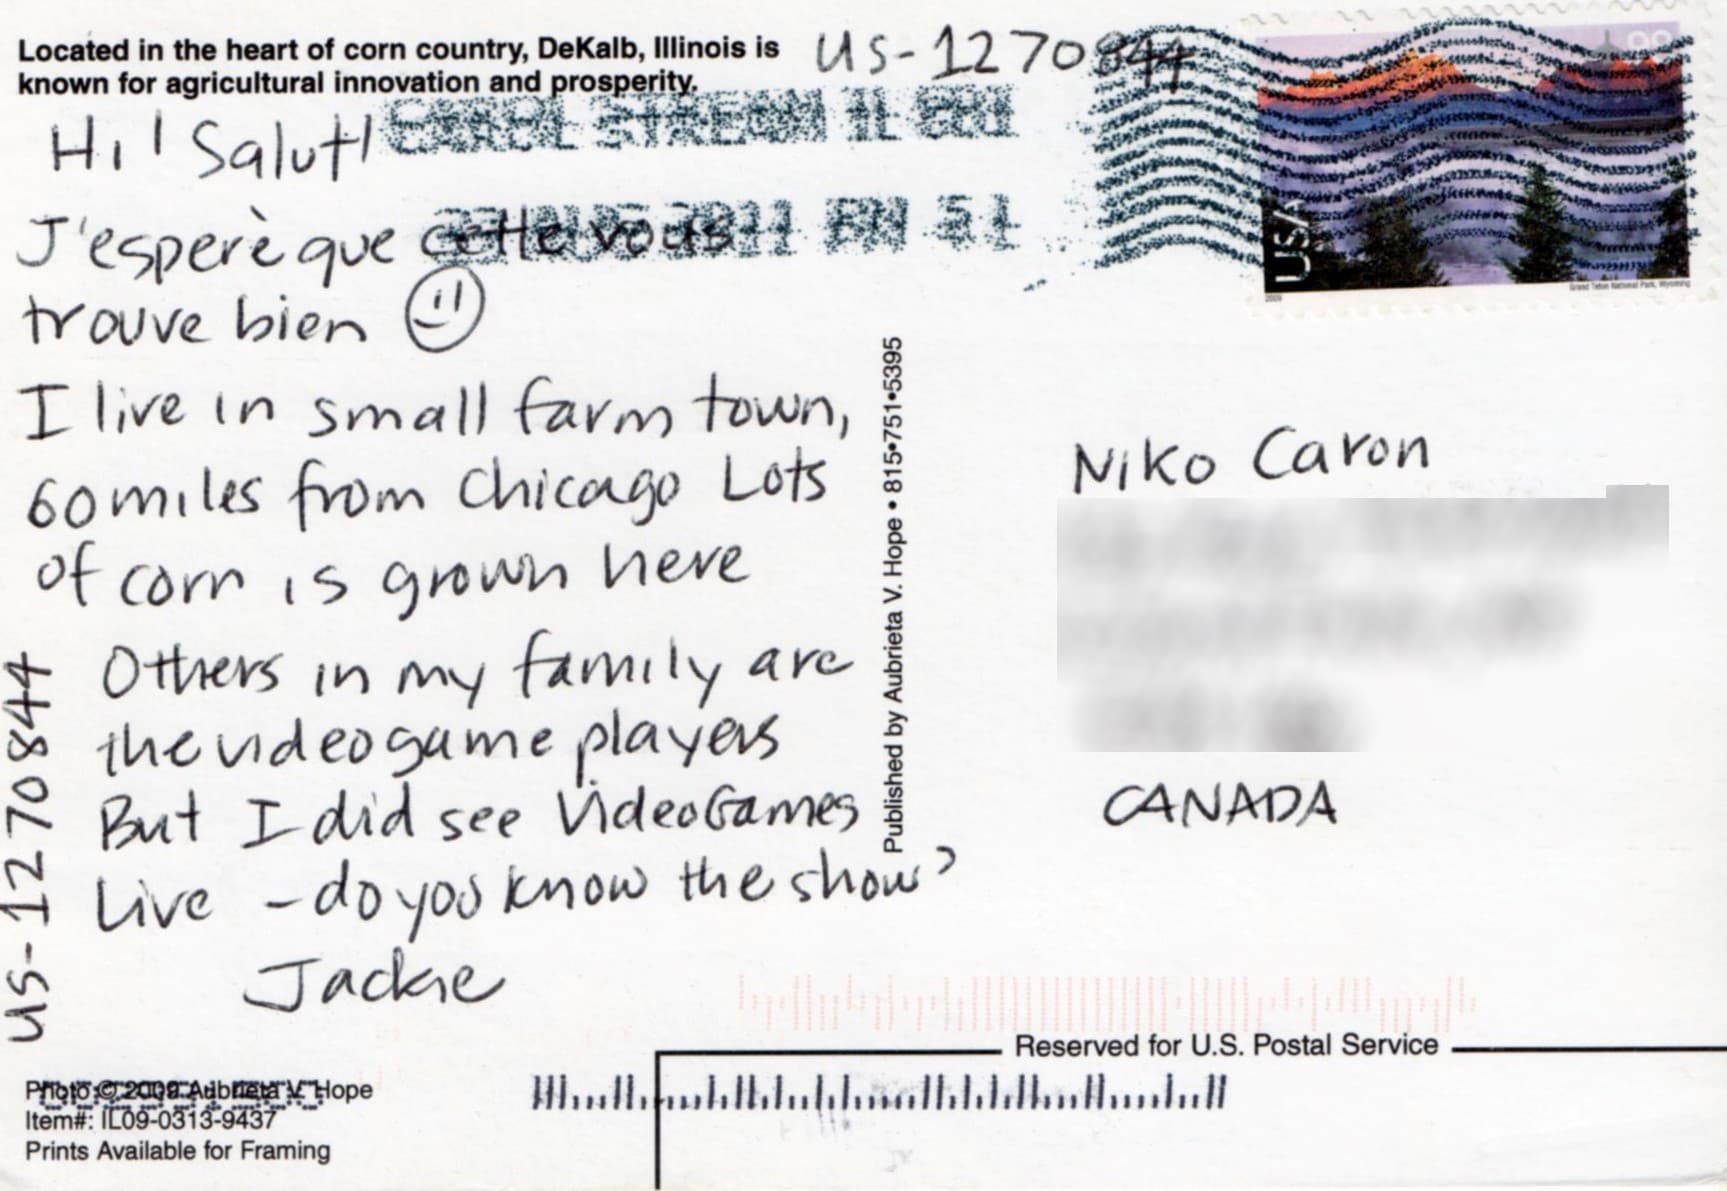 Located in the heart of corn country, DeKalb, Illinois is
known for agricultural innovation and prosperity.
US-1270844
CAROL STREAM IL
2011 PM
Hi! Salut!
J'esperè que cette vous
trouve bien
I live in small farm town,
60 miles from Chicago Lots
of corn is grown here
Others in my family are
the videogame players
But I did see VideoGames
Live - do you know the show?
Jackie
US-1270844
Published by Aubrieta V. Hope • 815•751•5395
USA
98
2009
Grand Teton National Park, Wyoming
Niko Caron
CANADA
Reserved for U.S. Postal Service
Photo © 2009 Aubrieta V. Hope
Item#: IL09-0313-9437
Prints Available for Framing